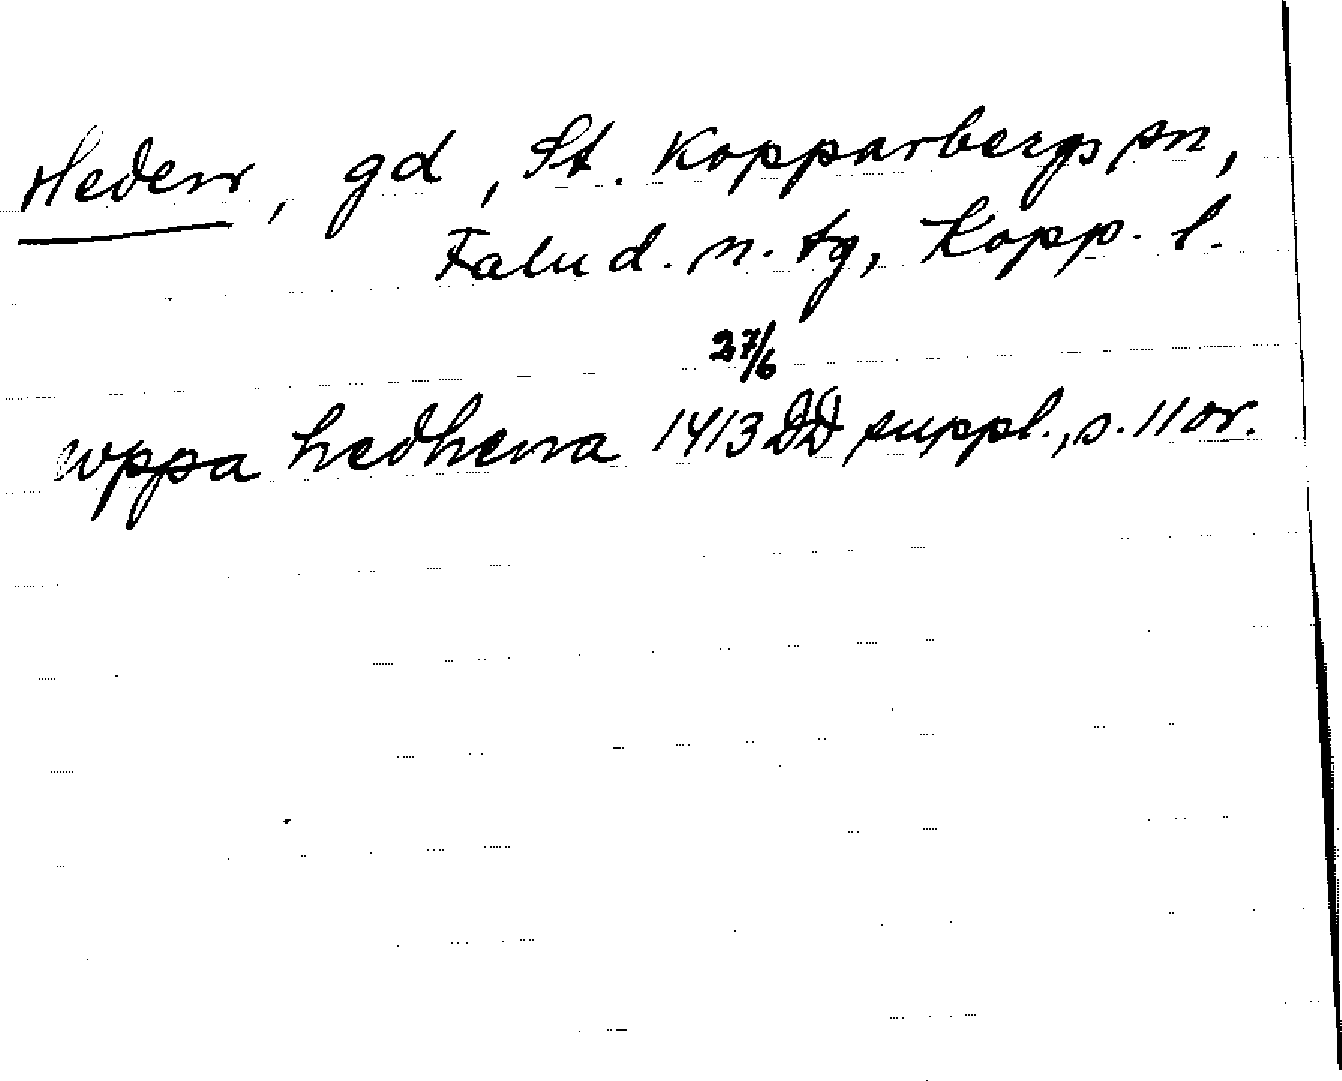 Heden, gd, St. Kopparbergs sn,
Falu d. n. tg, Kopp. l.
27/6
wppa hedhena 1413 DD suppl., s. 11 or.